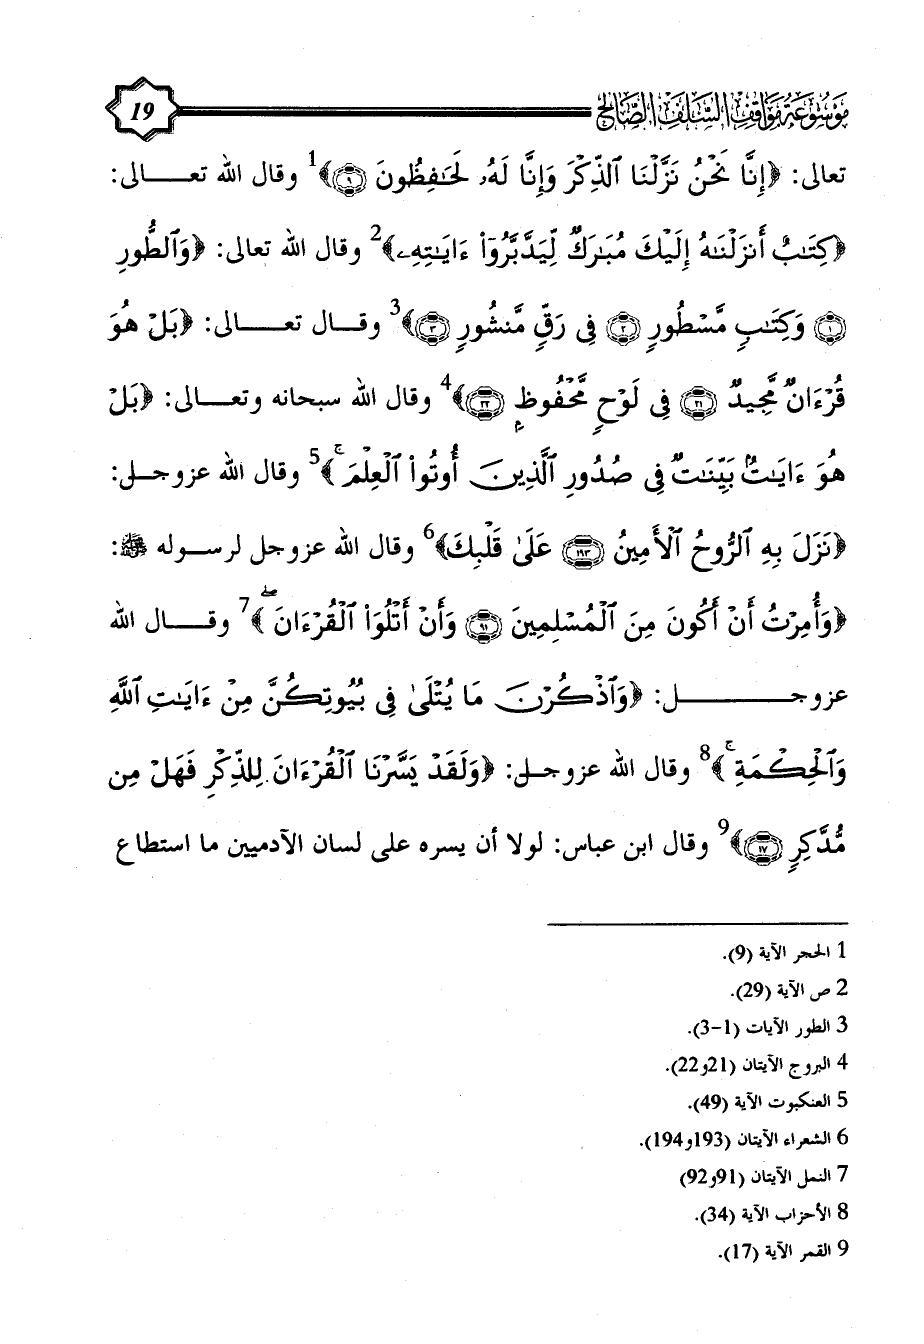 موسوعة مواقف السلف الصالح
19
تعالى: ﴿إِنَّا نَحْنُ نَزَّلْنَا ٱلذِّكْرَ وَإِنَّا لَهُۥ لَحَٰفِظُونَ ۝٩﴾1 وقال الله تعـــالى:
﴿كِتَٰبٌ أَنزَلْنَٰهُ إِلَيْكَ مُبَٰرَكٌ لِّيَدَّبَّرُوٓا۟ ءَايَٰتِهِۦ﴾2 وقال الله تعالى: ﴿وَٱلطُّورِ
۝١ وَكِتَٰبٍ مَّسْطُورٍ ۝٢ فِى رَقٍّ مَّنشُورٍ ۝٣﴾3 وقــال تعـــالى: ﴿بَلْ هُوَ
قُرْءَانٌ مَّجِيدٌ ۝٢١ فِى لَوْحٍ مَّحْفُوظٍۭ ۝٢٢﴾4 وقال الله سبحانه وتعـــالى: ﴿بَلْ
هُوَ ءَايَٰتٌۢ بَيِّنَٰتٌ فِى صُدُورِ ٱلَّذِينَ أُوتُوا۟ ٱلْعِلْمَ ۚ﴾5 وقال الله عزوجــل:
﴿نَزَلَ بِهِ ٱلرُّوحُ ٱلْأَمِينُ ۝١٩٣ عَلَىٰ قَلْبِكَ﴾6 وقال الله عزوجل لرســوله ﷺ:
﴿وَأُمِرْتُ أَنْ أَكُونَ مِنَ ٱلْمُسْلِمِينَ ۝٩١ وَأَنْ أَتْلُوَا۟ ٱلْقُرْءَانَ ۖ﴾7 وقـــال الله
عزوجـــــــل: ﴿وَٱذْكُرْنَ مَا يُتْلَىٰ فِى بُيُوتِكُنَّ مِنْ ءَايَٰتِ ٱللَّهِ
وَٱلْحِكْمَةِ ۚ﴾8 وقال الله عزوجــل: ﴿وَلَقَدْ يَسَّرْنَا ٱلْقُرْءَانَ لِلذِّكْرِ فَهَلْ مِن
مُّدَّكِرٍ ۝١٧﴾9 وقال ابن عباس: لولا أن يسره على لسان الآدميين ما استطاع
1 الحجر الآية (9).
2 ص الآية (29).
3 الطور الآيات (1-3).
4 البروج الآيتان (21و22).
5 العنكبوت الآية (49).
6 الشعراء الآيتان (193و194).
7 النمل الآيتان (91و92)
8 الأحزاب الآية (34).
9 القمر الآية (17).